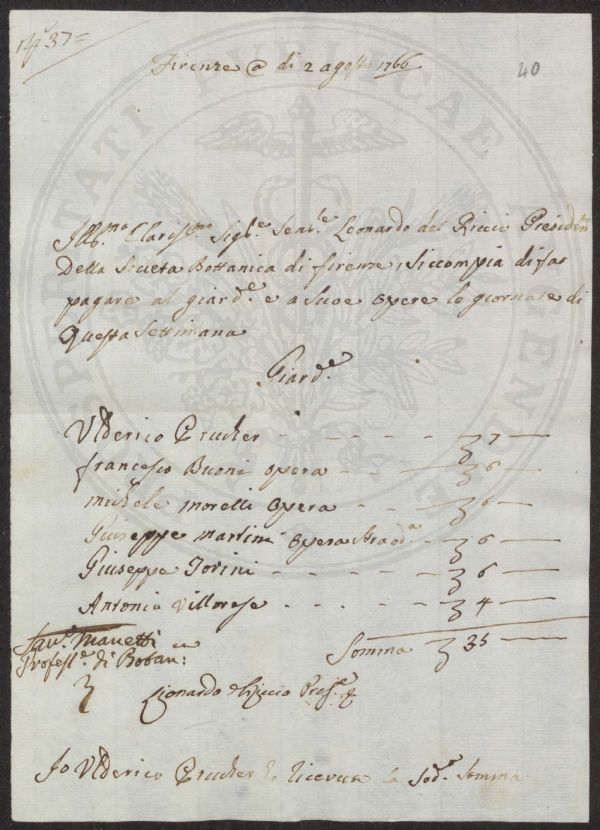 N.º 37 =
40
Firenze @ di 2 agosto 1766
Ill.mo Clariss.mo Sig.re Sen.re Leonardo del Riccio Presiden.te
Della Societa Bottanica di firenze, si compia di far
pagare al giard.e e a Suoe opere le giornate di
Questa Settimana
Giard.e
Ulderico Prucher - - - - - - 7 —
francesco Buoni opera - - - 6 —
michele morelli opera - - - 6 —
Giuseppe martini opera straod.a - - 6 —
Giuseppe Torini - - - - - 6 —
Antonia Villorese - - - - - 4 —
Sav.o Manetti
Profess.e di Botan:
Somma 35 —
Lionardo del Riccio Pres.e
Io Ulderico Prucher ho ricevuta la Sod.a Somma
PUBLICAE
UTILITATI